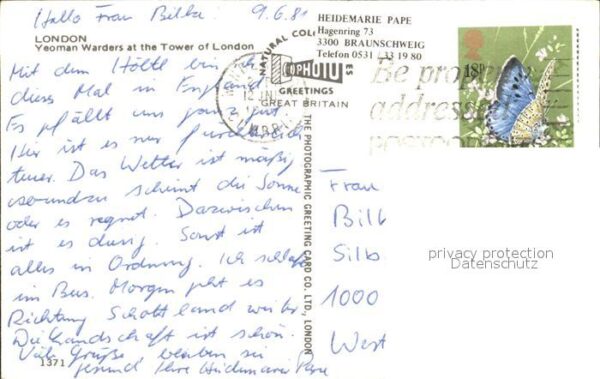 Hallo Frau Bilba! 9.6.81
HEIDEMARIE PAPE
Hagenring 73
3300 BRAUNSCHWEIG
Telefon 0531 / 33 19 80
LONDON
Yeoman Warders at the Tower of London
NATURAL COLOUR
PHOTO
GREETINGS
GREAT BRITAIN
18P
Be
address
Mit dem Höltl bin ich
dieses Mal in England.
Es gfällt uns ganz gut
Hier ist es nur furchtbar
teuer. Das Wetter ist mäßig
scheint die Sonne
oder es regnet. Dazwischen
ist es dunstig. Sonst ist
alles in Ordnung. Ich schlafe
im Bus. Morgen geht es
Richtung Schottland weiter.
Die Landschaft ist schön.
Viele Grüße bleiben sie
gesund Ihre Heidemarie Pape
1371
THE PHOTOGRAPHIC GREETING CARD CO. LTD., LONDON
Frau
Bilb
Silb
1000
West
privacy protection
Datenschutz